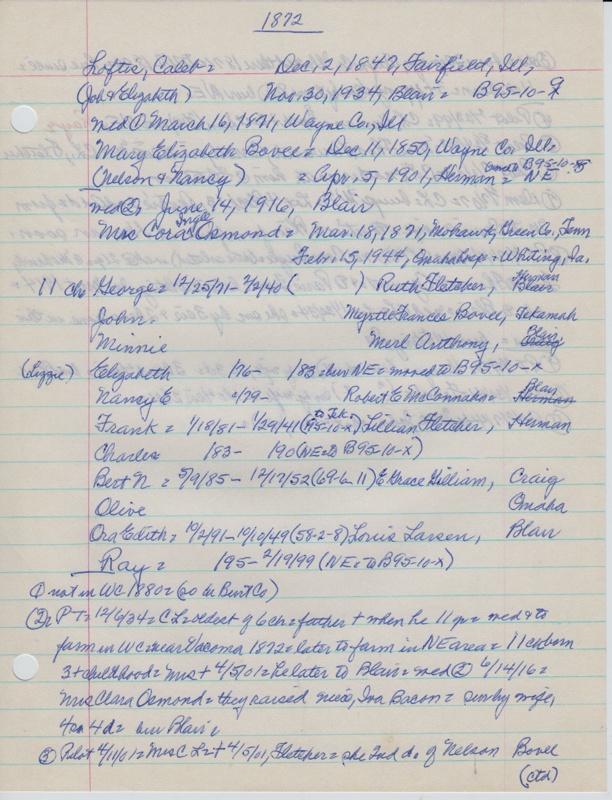 1872
Loftis, Caleb = Dec, 2, 1847, Fairfield, Ill,
(Job & Elizabeth) Nov. 30, 1934, Blair = B95-10-9
med ① March 16, 1871, Wayne Co, Ill
Mary Elizabeth Bovee = Dec 11, 1850, Wayne Co Ill,
(Nelson & Nancy) = Apr. 5, 1901, Herman = NE B95-10-8
med ②, June 14, 1916, Blair
Mrs Cora Ingle Osmond = Mar. 18, 1871, Mohawk, Green Co, Tenn
Febr. 15, 1944, Omaha hosp = Whiting, Ia.
11 ch George = 12/25/71 - 2/2/40 ( ) Ruth Fletcher, Herman Blair
John = Myrtle Frances Bovee, Tekamah
Minnie Merl Anthony, Blair Craig
(Lizzie) Elizabeth /76- /83 = bur NE = moved to B95-10-x
Nancy E /79- Robert E McConnaha = Blair Herman
Frank = 1/18/81 - 1/29/41 (95-10-x) Lillian Fletcher, Herman
Charles /83- /90 (NE = to B95-10-x)
Bert N = 5/9/85 - 12/17/52 (69-6-11) E Grace Gilliam, Craig
Olive Omaha
Ora Edith = 10/2/91 - 10/10/49 (58-2-8) Louis Larsen, Blair
Ray = /95 - 2/19/99 (NE = to B95-10-x)
① not in WC 1880 = (so in Burt Co)
② PT = 12/6/34 = C L = oldest of 6 ch = father + when he 11 = med & to
farm in WC near Vacoma 1872 = later to farm in NE area = 11 ch born
3 + childhood = Mrs + 4/5/01 = he later to Blair = med ② 6/14/16 =
Mrs Clara Osmond = they raised niece, Iva Bacon = surv by wife,
4 s 4 d = bur Blair
③ Pilot 4/11/01 = Mrs C L = + 4/5/01, Fletcher = she 2nd da of Nelson Bovee
(ctd)